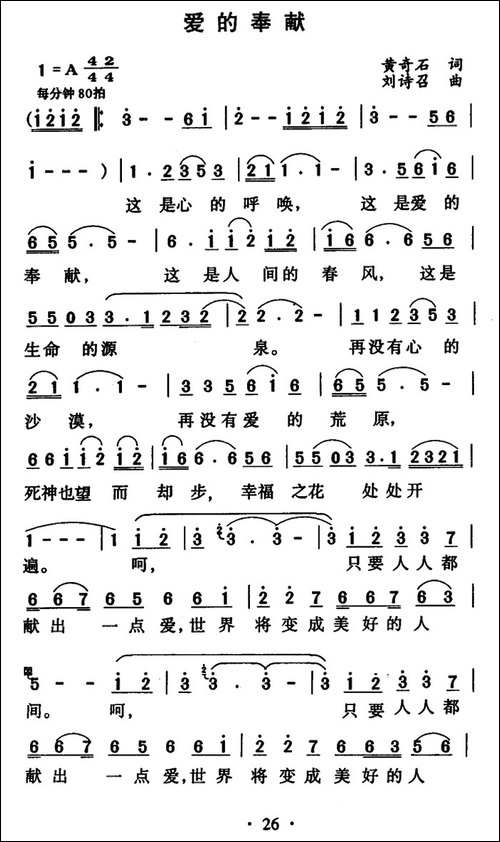 爱的奉献
1=A 4/4 2/4
黄奇石 词
每分钟80拍
刘诗召 曲
(i̇2̇i̇2̇ 𝄆 3̇ - - 6i̇ | 2̇ - - i̇2̇i̇2̇ | 3̇ - - 56 |
i̇ - - - ) | 1 · 2353 | 211 · 1 - | 3 · 56i̇6 |
这是心的呼唤， 这是爱的
655 · 5 - | 6 · i̇i̇2̇i̇2̇ | i̇66 · 656 |
奉献， 这是人间的春风，这是
550333 · 1232 | 22 · 2 - | 112353 |
生命的源泉。 再没有心的
211 · 1 - | 3356i̇6 | 655 · 5 - |
沙漠， 再没有爱的荒原，
66i̇i̇2̇i̇2̇ | i̇66 · 656 | 55033 · 12321 |
死神也望而却步，幸福之花处处开
1 - - - | 1 i̇2̇ | 3̇ 3̇ · 3̇ - | 3̇i̇2̇3̇3̇7 |
遍。 呵， 只要人人都
667 65 66i̇ | 2̇2̇7 667 63 |
献出一点爱，世界将变成美好的人
5 - - i̇2̇ | 3̇ 3̇ · 3̇ - | 3̇i̇2̇3̇3̇7 |
间。 呵， 只要人人都
667 65 66i̇ | 2̇ · 2̇7 663 56 |
献出一点爱，世界将变成美好的人
· 26 ·